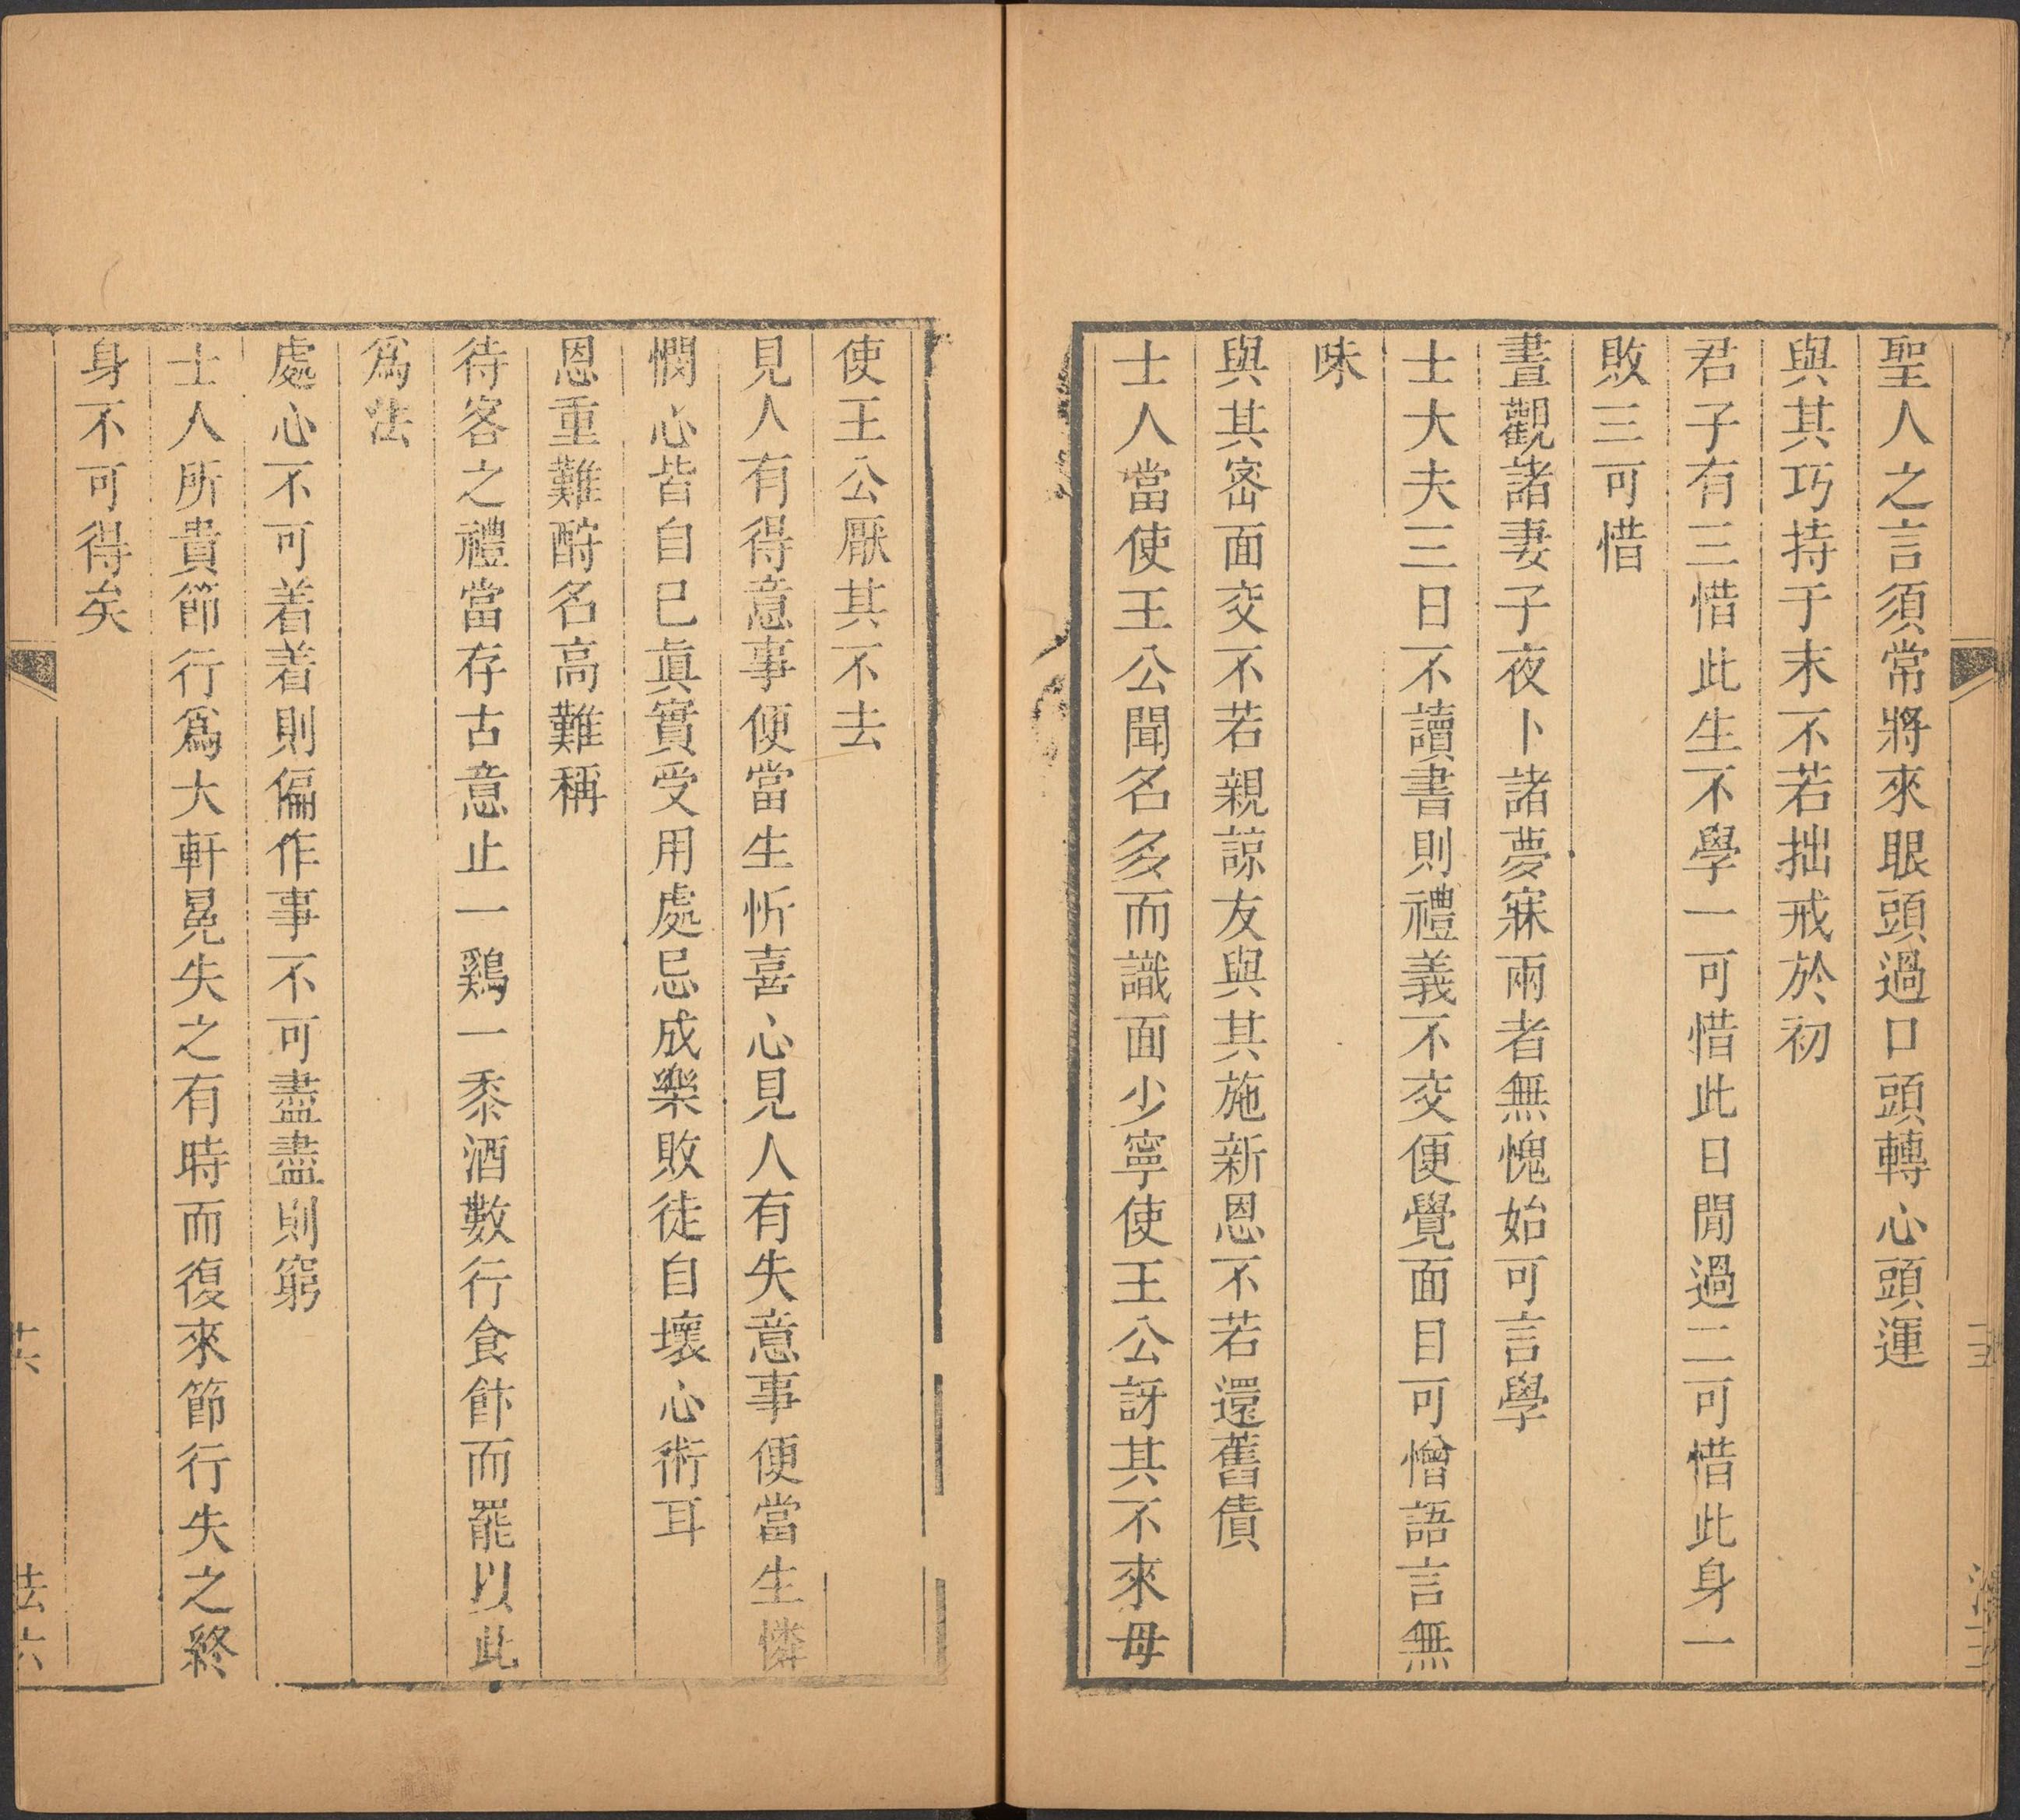 聖人之言須常將來眼頭過口頭轉心頭運
與其巧持于末不若拙戒於初
君子有三惜此生不學一可惜此日閒過二可惜此身一
敗三可惜
晝觀諸妻子夜卜諸夢寐兩者無愧始可言學
士大夫三日不讀書則禮義不交便覺面目可憎語言無
味
與其密面交不若親諒友與其施新恩不若還舊債
士人當使王公聞名多而識面少寧使王公訝其不來毋
使王公厭其不去
見人有得意事便當生忻喜心見人有失意事便當生憐
憫心皆自己眞實受用處忌成樂敗徒自壞心術耳
恩重難酧名高難稱
待客之禮當存古意止一鷄一黍酒數行食飰而罷以此
爲法
處心不可着着則偏作事不可盡盡則窮
士人所貴節行爲大軒冕失之有時而復來節行失之終
身不可得矣
法六